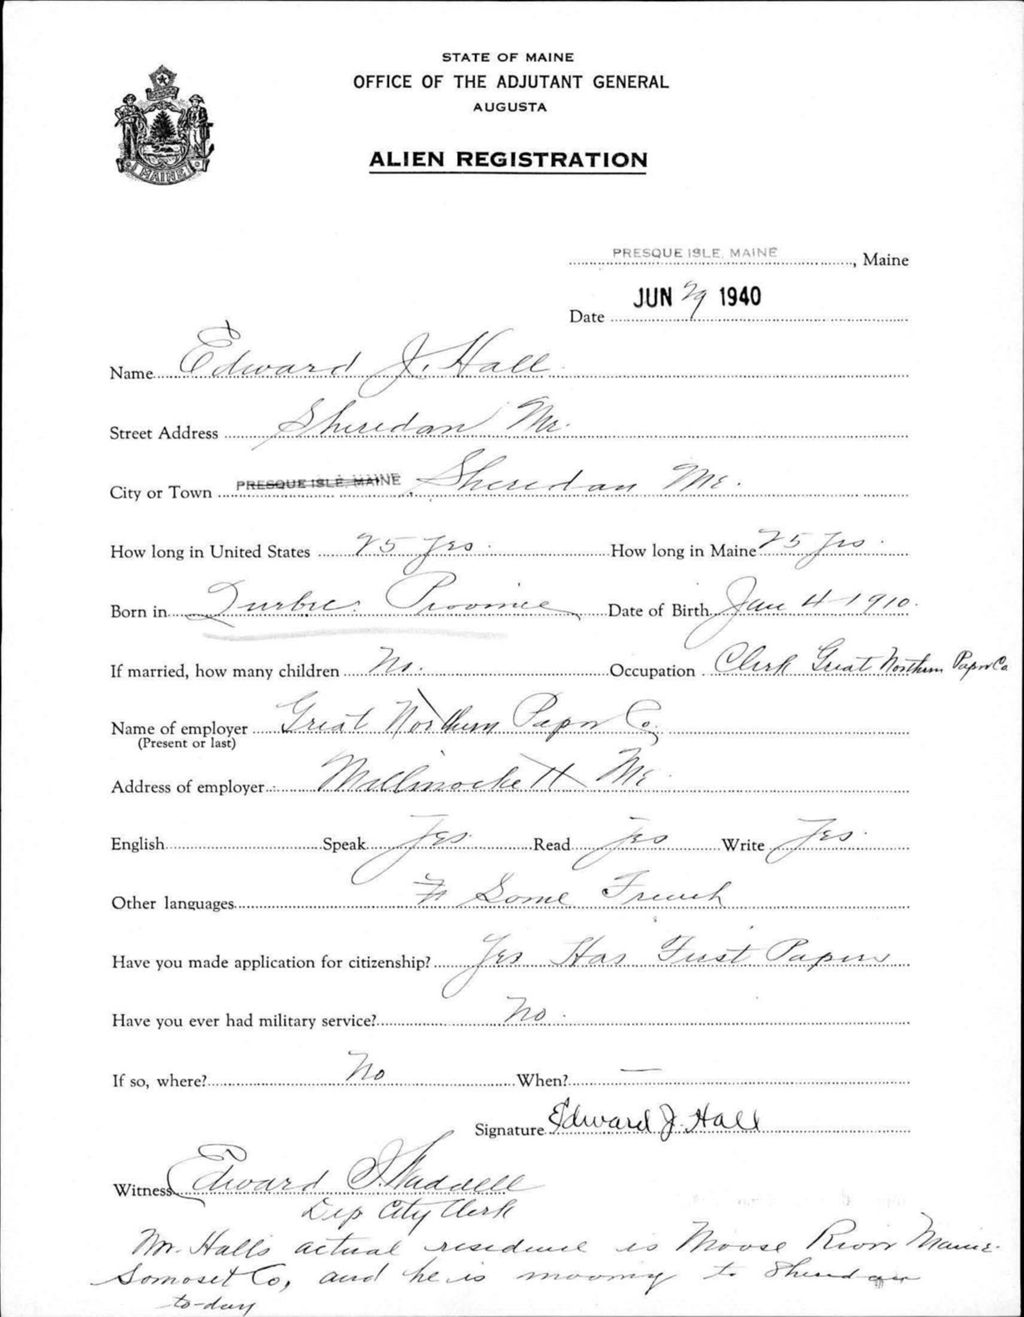 STATE OF MAINE
OFFICE OF THE ADJUTANT GENERAL
AUGUSTA
ALIEN REGISTRATION
MAINE
PRESQUE ISLE, MAINE, Maine
Date JUN 29 1940
Name Edward J. Hall
Street Address Sheridan Me.
City or Town PRESQUE ISLE, MAINE Sheridan Me.
How long in United States 25 yrs. How long in Maine 25 yrs.
Born in Quebec Province Date of Birth Jan 4 1910.
If married, how many children No. Occupation Clerk Great Northern Paper Co
Name of employer Great Northern Paper Co.
(Present or last)
Address of employer Millinockett Me.
English Speak Yes. Read yes Write Yes.
Other languages Some French
Have you made application for citizenship? Yes Has First Papers
Have you ever had military service? No.
If so, where? No When? —
Signature Edward J. Hall
Witness Edward Waddell
Dep City Clerk
Mr. Halls actual residence is Moose River Maine.
Somoset Co, and he is moving to Sheridan
to-day